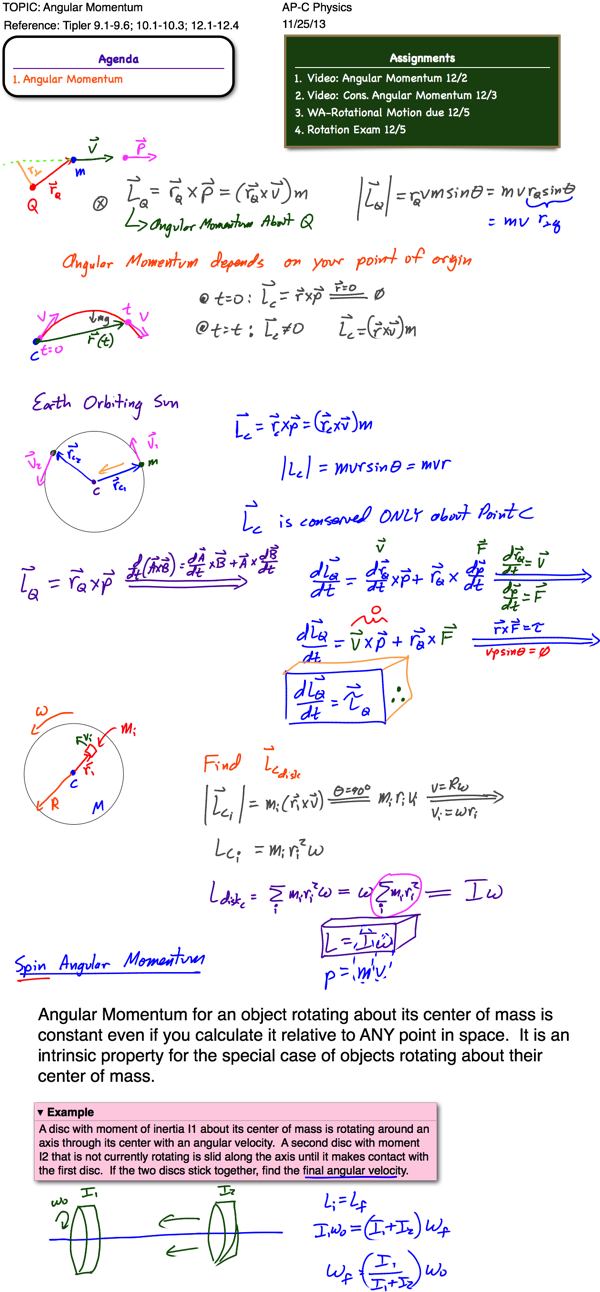 TOPIC: Angular Momentum
AP-C Physics
Reference: Tipler 9.1-9.6; 10.1-10.3; 12.1-12.4
11/25/13
Agenda
1. Angular Momentum
Assignments
1. Video: Angular Momentum 12/2
2. Video: Cons. Angular Momentum 12/3
3. WA-Rotational Motion due 12/5
4. Rotation Exam 12/5
r⊥ V⃗ P⃗ m r⃗_Q Q
⊗ L⃗_Q = r⃗_Q × p⃗ = (r⃗_Q × v⃗)m
|L⃗_Q| = r_Q v m sinθ = m v r_Q sinθ
↳ Angular Momentum About Q
= m v r_⊥Q
Angular Momentum depends on your point of orgin
V t V mg r⃗(t) C t=0
@ t=0 : L⃗_c = r⃗×p⃗ =(r⃗=0)= ∅
@ t=t : L⃗_c ≠ 0 L⃗_c = (r⃗×v⃗)m
Earth Orbiting Sun
V⃗_2 r⃗_c2 V⃗_1 m C r⃗_c1
L⃗_c = r⃗_c × p⃗ = (r⃗_c × v⃗)m
|L_c| = mvrsinθ = mvr
L⃗_c is conserved ONLY about Point C
L⃗_Q = r⃗_Q × p⃗ d/dt(A⃗×B⃗) = dA⃗/dt × B⃗ + A⃗ × dB⃗/dt
V⃗ F⃗
dL⃗_Q/dt = dr⃗_Q/dt × p⃗ + r⃗_Q × dp⃗/dt dr⃗_Q/dt = V⃗ dp⃗/dt = F⃗
0
dL⃗_Q/dt = V⃗ × p⃗ + r⃗_Q × F⃗ r⃗×F⃗ = τ vpsinθ = ∅
dL⃗_Q/dt = τ⃗_Q ∴
ω V_i m_i r⃗_i C R M
Find L⃗_c disk
|L⃗_ci| = m_i (r⃗_i × v⃗) =(θ=90°)= m_i r_i v_i V=Rω v_i = ωr_i
L_ci = m_i r_i² ω
L_disk c = Σ_i m_i r_i² ω = ω Σ_i m_i r_i² = Iω
L = I ω⃗
p = m v
Spin Angular Momentum
Angular Momentum for an object rotating about its center of mass is
constant even if you calculate it relative to ANY point in space. It is an
intrinsic property for the special case of objects rotating about their
center of mass.
▼ Example
A disc with moment of inertia I1 about its center of mass is rotating around an
axis through its center with an angular velocity. A second disc with moment
I2 that is not currently rotating is slid along the axis until it makes contact with
the first disc. If the two discs stick together, find the final angular velocity.
ω_0 I_1 I_2
L_i = L_f
I_1 ω_0 = (I_1 + I_2) ω_f
ω_f = (I_1 / (I_1 + I_2)) ω_0